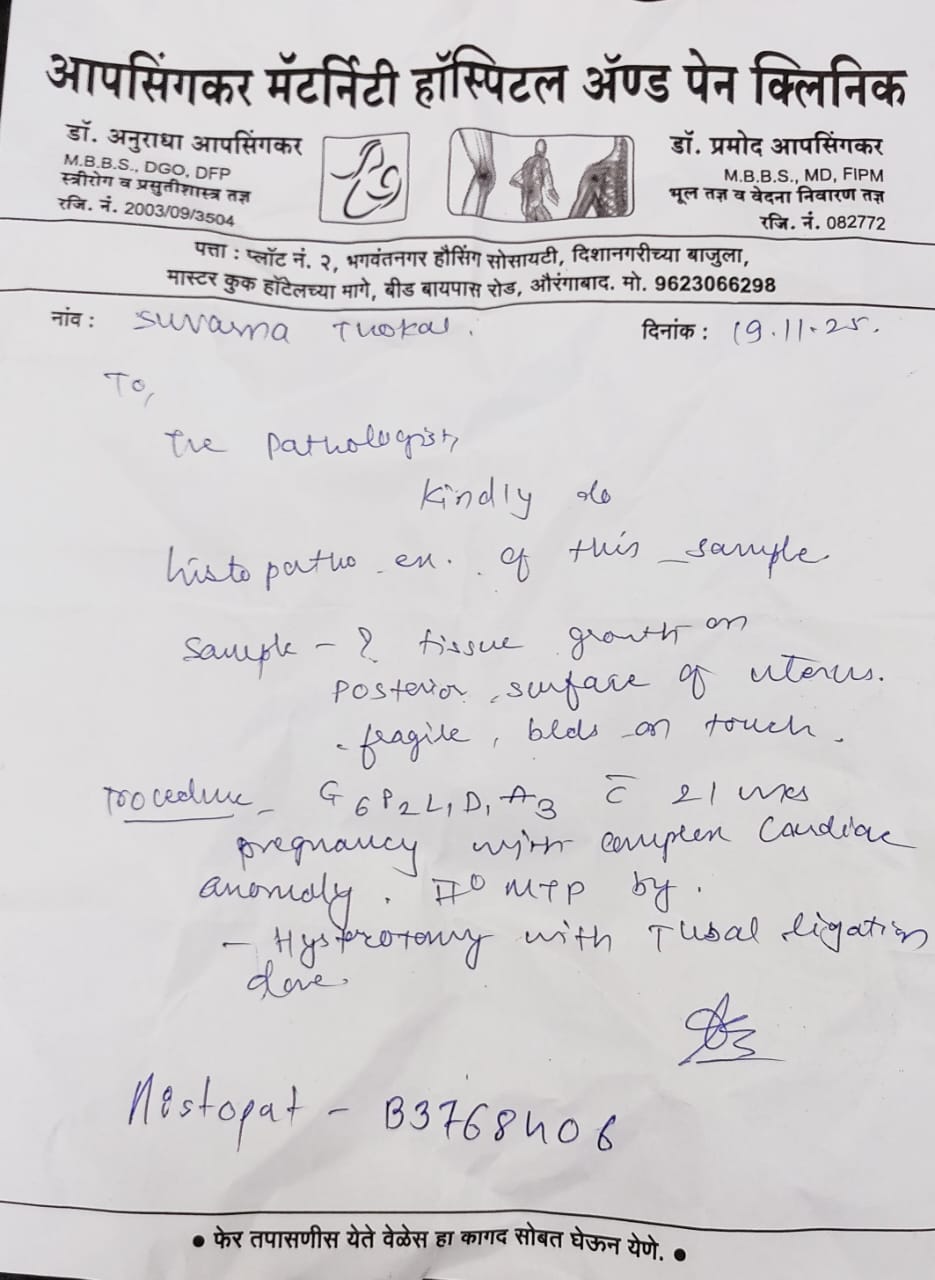 आपसिंगकर मॅटर्निटी हॉस्पिटल अ‍ॅण्ड पेन क्लिनिक
डॉ. अनुराधा आपसिंगकर
M.B.B.S., DGO, DFP
स्त्रीरोग व प्रसुतीशास्त्र तज्ञ
रजि. नं. 2003/09/3504
डॉ. प्रमोद आपसिंगकर
M.B.B.S., MD, FIPM
भूल तज्ञ व वेदना निवारण तज्ञ
रजि. नं. 082772
पत्ता : प्लॉट नं. २, भगवंतनगर हौसिंग सोसायटी, दिशानगरीच्या बाजुला,
मास्टर कुक हॉटेलच्या मागे, बीड बायपास रोड, औरंगाबाद. मो. 9623066298
नांव : Suvarna
दिनांक : 19.11.25.
To,
The Pathologist,
Kindly do
histopatho ex. of this sample
Sample - ? tissue growth on
posterior surface of uterus.
fragile, blds on touch.
Procedure - G6P2L1D1A3 c̄ 21 wks
pregnancy with complex Cardiac
anomaly. II° MTP by.
- Hysterotomy with Tubal ligation
done.
Histopat - B3768406
• फेर तपासणीस येते वेळेस हा कागद सोबत घेऊन येणे. •